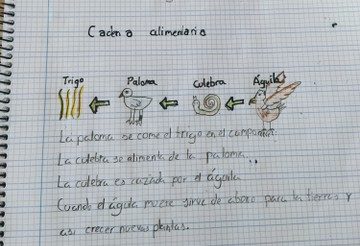 Cadena alimenticia
Trigo Paloma Culebra Águila
La paloma se come el trigo en el campo
La culebra se alimenta de la paloma.
La culebra es cazada por el águila
Cuando el águila muere sirve de abono para la tierra y
asi crecer nuevas plantas.